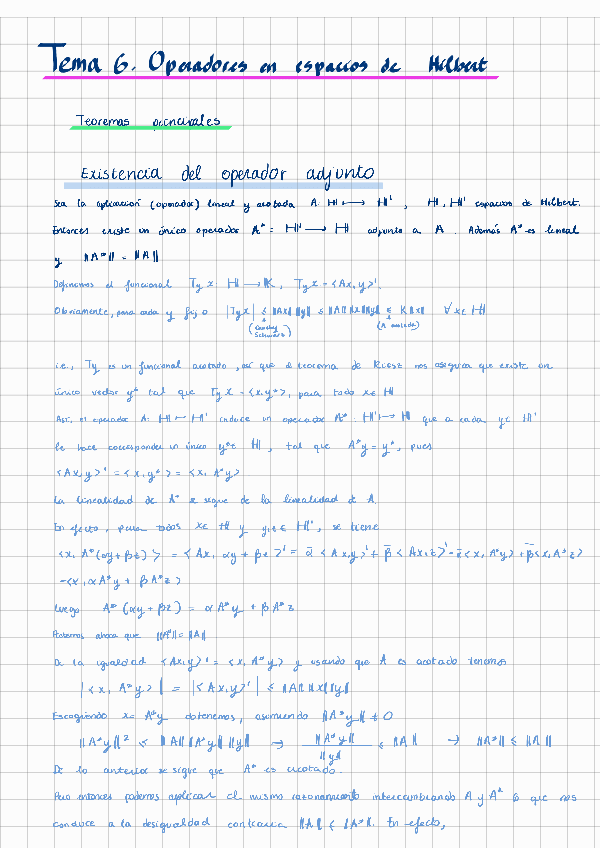 Tema 6. Operadores en espacios de Hilbert
Teoremas principales
Existencia del operador adjunto
Sea la aplicación (operador) lineal y acotada A: H ⟼ H', H, H' espacios de Hilbert.
Entonces existe un único operador A*: H' ⟶ H adjunto a A. Además A* es lineal
y ‖A*‖ = ‖A‖
Definimos el funcional Ty x: H ⟶ K, Ty x = <Ax, y>'.
Obviamente, para cada y fijo |Ty x| ≤ ‖Ax‖‖y‖ ≤ ‖A‖‖x‖‖y‖ ≤ K‖x‖ ∀ x ∈ H
(Cauchy Schwarz) (A acotado)
i.e., Ty es un funcional acotado, así que el teorema de Riesz nos asegura que existe un
único vector y* tal que Ty x = <x, y*>, para todo x ∈ H
Así, el operador A: H ⟼ H' induce un operador A*: H' ⟼ H que a cada y ∈ H'
le hace corresponder un único y* ∈ H, tal que A*y = y*, pues
<Ax, y>' = <x, y*> = <x, A*y>
La linealidad de A* se sigue de la linealidad de A.
En efecto, para todos x ∈ H y y, z ∈ H', se tiene
<x, A*(αy + βz)> = <Ax, αy + βz>' = ᾱ <Ax, y>' + β̄ <Ax, z>' = ᾱ<x, A*y> + β̄<x, A*z>
= <x, αA*y + βA*z>
Luego A*(αy + βz) = αA*y + βA*z
Probemos ahora que ‖A*‖ = ‖A‖
De la igualdad <Ax, y>' = <x, A*y> y usando que A es acotado tenemos
|<x, A*y>| = |<Ax, y>'| ≤ ‖A‖‖x‖‖y‖
Escogiendo x = A*y obtenemos, asumiendo ‖A*y‖ ≠ 0
‖A*y‖² ≤ ‖A‖‖A*y‖‖y‖ → ‖A*y‖/‖y‖ ≤ ‖A‖ → ‖A*‖ ≤ ‖A‖
De lo anterior se sigue que A* es acotado.
Pero entonces podemos aplicar el mismo razonamiento intercambiando A y A* lo que nos
conduce a la desigualdad contraria ‖A‖ ≤ ‖A*‖. En efecto,